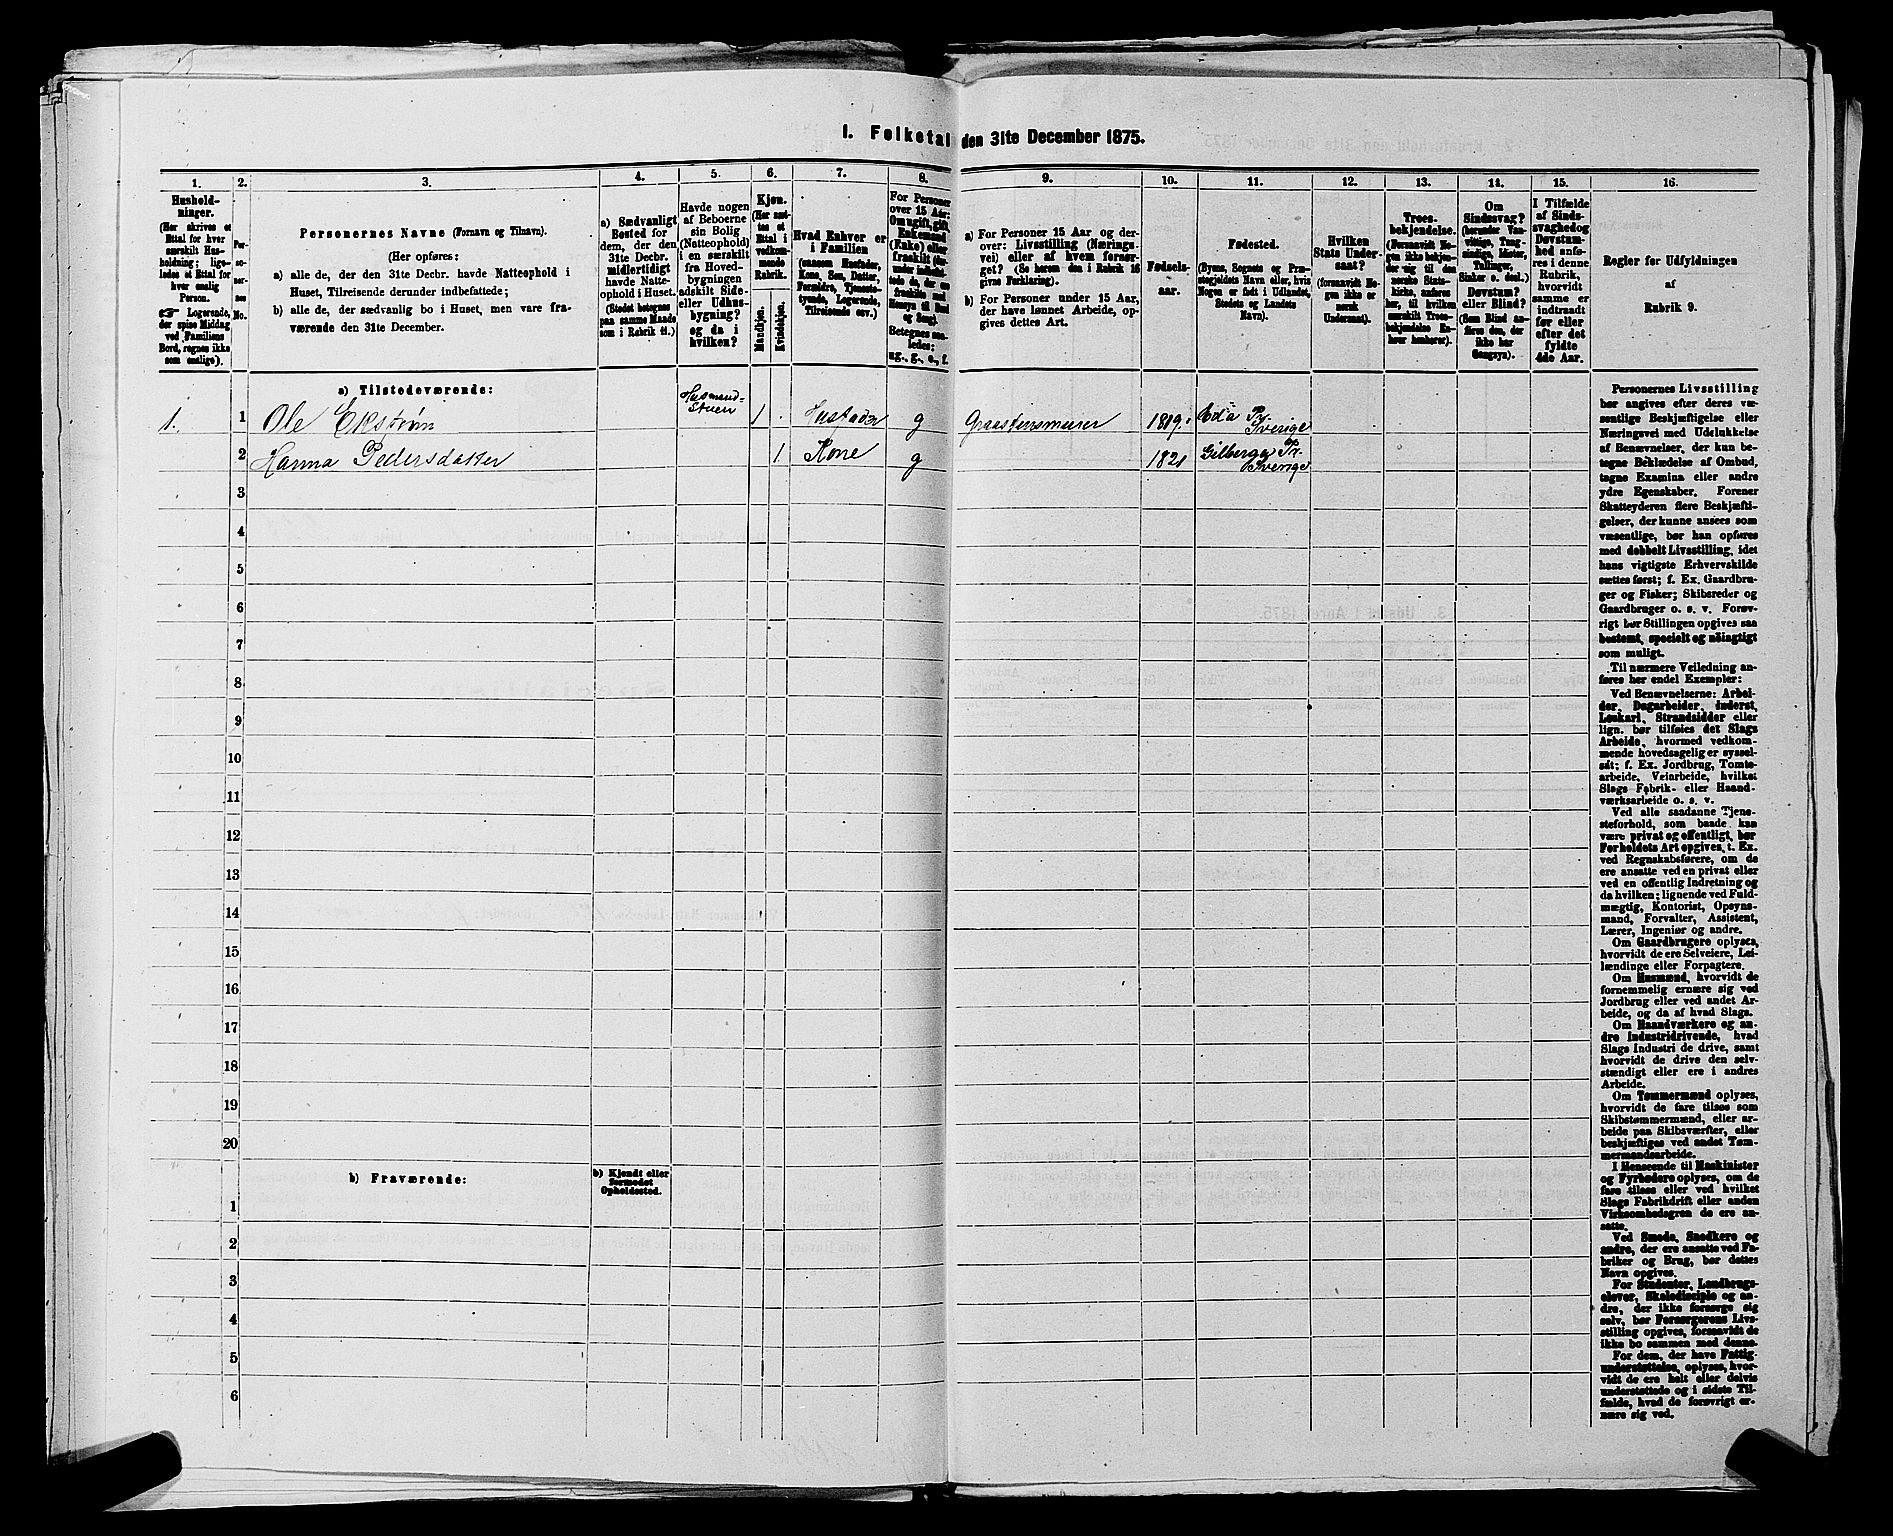 I. Folketal den 31te December 1875.
1. 2. 3. 4. 5. 6. 7. 8. 9. 10. 11. 12. 13. 14. 15. 16.
Hushold-
ninger.
(Her skrives et
Ettal for hver
særskilt Hus-
holdning; lige-
ledes et Ettal for
hver enslig
Person.
☞ Logerende,
der spise Middag
ved Familiens
Bord, regnes ikke
som enslige).
Per-
so-
ner-
nes
No.
Personernes Navne (Fornavn og Tilnavn).
(Her opføres:
a) alle de, der den 31te Decbr. havde Natteophold i
Huset, Tilreisende derunder indbefattede;
b) alle de, der sædvanlig bo i Huset, men vare fra-
værende den 31te December.
a) Sædvanligt
Bosted for
dem, der den
31te Decbr.
midlertidigt
havde Natte-
ophold i Huset.
(Stedet betegnes
paa samme Maade
som i Rubrik 11.)
Havde nogen
af Beboerne
sin Bolig
(Natteophold)
i en særskilt
fra Hoved-
bygningen
adskilt Side-
eller Udhus-
bygning?
og da i
hvilken?
Kjøn.
(Her sæt-
tes et
Ettal i
vedkom-
mende
Rubrik.
Mandkjøn.
Kvindekjøn.
Hvad Enhver er
i Familien
(saasom Husfader,
Kone, Søn, Datter,
Forældre, Tjeneste-
tyende, Logerende,
Tilreisende osv.)
For Personer
over 15 Aar:
Om ugift, gift,
Enkemand
(Enke) eller
fraskilt (her-
under indbefat-
tede de, der ere
fraskilte med
Hensyn til Bord
og Seng).
Betegnes saa-
ledes:
ug., g., e., f.
a) For Personer 15 Aar og der-
over: Livsstilling (Nærings-
vei) eller af hvem forsør-
get? (Se herom den i Rubrik 16
givne Forklaring).
b) For Personer under 15 Aar,
der have lønnet Arbeide, op-
gives dettes Art.
Fødsels-
aar.
Fødested.
(Byens, Sognets og Præ-
stegjeldets Navn eller, hvis
Nogen er født i Udlandet,
Stedets og Landets
Navn).
Hvilken
Stats Under-
saat?
(forsaavidt No-
gen ikke er
norsk
Undersaat).
Troes-
bekjendelse.
(Forsaavidt No-
gen ikke bekjen-
der sig til den
norske Stats-
kirke, anføres
her, til hvilken
særskilt Troes-
bekjendelse En-
hver henhører).
Om
Sindssvag?
(herunder Van-
vittige, Tung-
sindige, Idioter,
Tullinger,
Sinker o. desl.)
Døvstum?
eller Blind?
(Som Blind an-
føres den, der
ikke har
Gangsyn).
I Tilfælde
af Sinds-
svaghed og
Døvstum-
hed anfø-
res i denne
Rubrik,
hvorvidt
samme er
indtraadt
før eller
efter det
fyldte
4de Aar.
Regler for Udfyldningen
af
Rubrik 9.
a) Tilstedeværende:
1. 1 Ole Ekstrøm Husmand-
Stuen 1 Husfader g Graastensmurer 1819. Eda Pr
Sverige
2 Hanna Pedersdatter 1 Kone g 1821 Gilberga Pr.
Sverige
3
4
5
6
7
8
9
10
11
12
13
14
15
16
17
18
19
20
b) Fraværende: b) Kjendt eller
formodet
Opholdssted.
1
2
3
4
5
6
Personernes Livsstilling
bør angives efter deres væ-
sentlige Beskjæftigelse eller
Næringsvei med Udelukkelse
af Benævnelser, der kun be-
tegne Beklædelse af Ombud,
tagne Examina eller andre
ydre Egenskaber. Forener
Skatteyderen flere Beskjæfti-
gelser, der kunne ansees som
væsentlige, bør han opføres
med dobbelt Livsstilling, idet
hans vigtigste Erhvervskilde
sættes først; f. Ex. Gaardbru-
ger og Fisker; Skibsreder og
Gaardbruger o. s. v. Forøv-
rigt bør Stillingen opgives saa
bestemt, specielt og nöiagtigt
som muligt.
Til nærmere Veiledning an-
føres her endel Exempler:
Ved Benævnelserne: Arbei-
der, Dagarbeider, Inderst,
Løskarl, Strandsidder eller
lign. bør tilføies det Slags
Arbeide, hvormed vedkom-
mende hovedsagelig er syssel-
sat; f. Ex. Jordbrug, Tomte-
arbeide, Veiarbeide, hvilket
Slags Fabrik- eller Haand-
værksarbeide o. s. v.
Ved alle saadanne Tjene-
steforhold, som baade kan
være privat og offentligt, bør
Forholdets Art opgives, t. Ex.
ved Regnskabsførere, om de
ere ansatte ved en privat eller
ved en offentlig Indretning og
da hvilken; lignende ved Fuld-
mægtig, Kontorist, Opsyns-
mand, Forvalter, Assistent,
Lærer, Ingeniør og andre.
Om Gaardbrugere oplyses,
hvorvidt de ere Selveiere, Lei-
lændinge eller Forpagtere.
Om Husmænd, hvorvidt de
fornemmelig ernære sig ved
Jordbrug eller ved andet Ar-
beide, og da af hvad Slags.
Om Haandværkere og an-
dre Industridrivende, hvad
Slags Industri de drive, samt
hvorvidt de drive den selv-
stændigt eller ere i andres
Arbeide.
Om Tømmermænd oplyses,
hvorvidt de fare tilsøs som
Skibstømmermænd, eller ar-
beide paa Skibsværfter, eller
beskjæftiges ved andet Tøm-
mermandsarbeide.
I Henseende til Maskinister
og Fyrbødere oplyses, om de
fare tilsøs eller ved hvilket
Slags Fabrikdrift eller anden
Virksomhedsgren de ere an-
satte.
Ved Smede, Snedkere og
andre, der ere ansatte ved Fa-
briker og Brug, bør dettes
Navn opgives.
For Studenter, Landbrugs-
elever, Skoledisciple og an-
dre, der ikke forsørge sig
selv, bør Forsørgerens Livs-
stilling opgives, forsaavidt de
ikke bo sammen med denne.
For dem, der have Fattig-
understøttelse, oplyses, hvor-
vidt de ere helt eller delvis
understøttede og i sidste Til-
fælde, hvad de forøvrigt er-
nære sig ved.